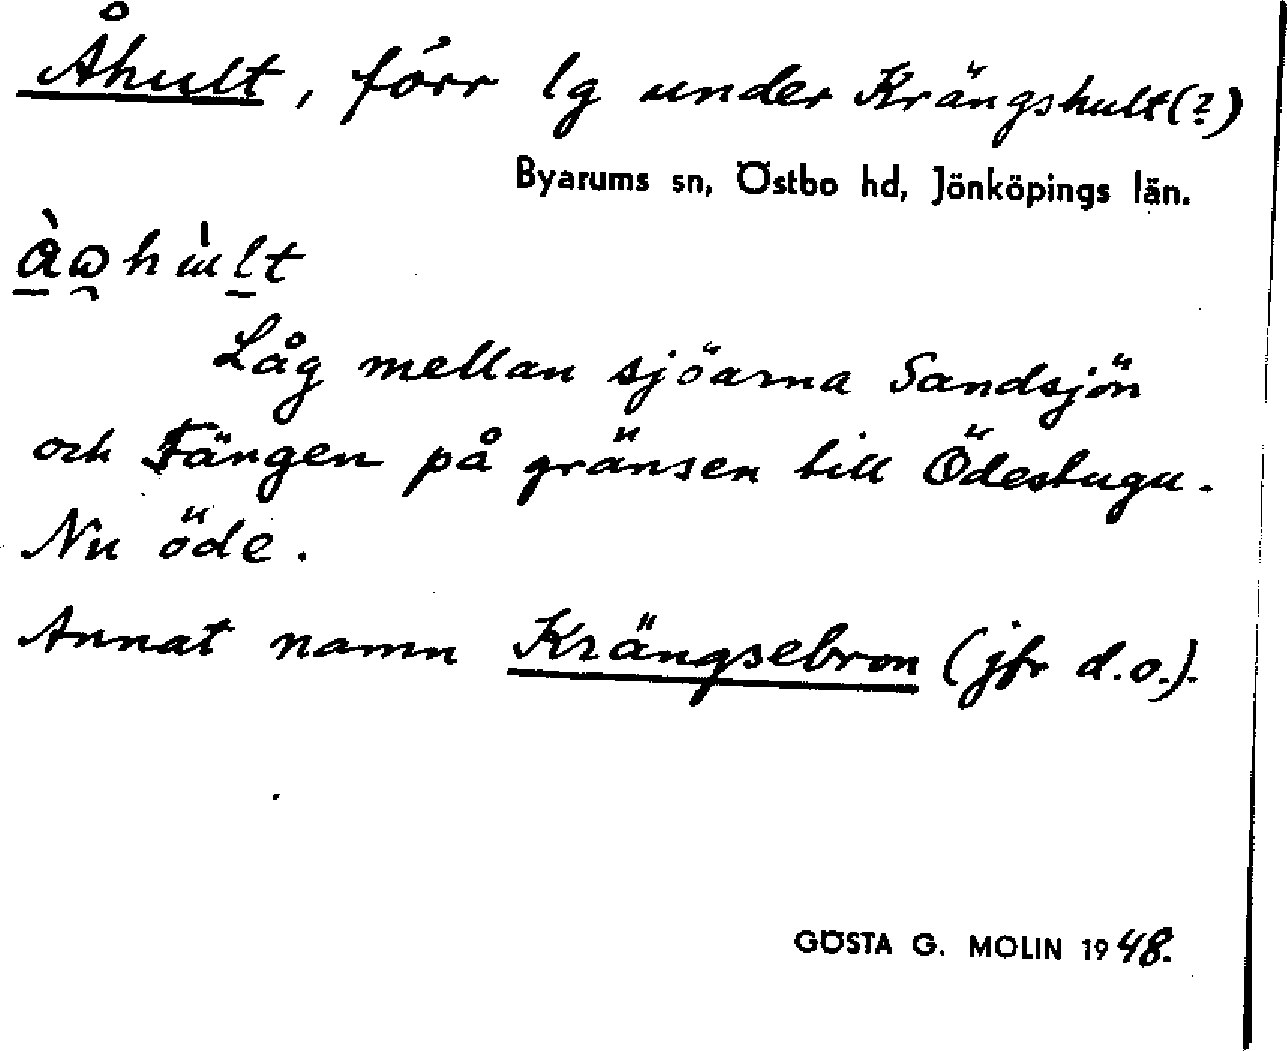 Åhult, förr lg under Krängshult(?)
Byarums sn, Östbo hd, Jönköpings län.
Låg mellan sjöarna Sandsjön
och Fängen på gränsen till Ödestugu.
Nu öde.
Annat namn Krängsebron (jfr d.o.).
GÖSTA G. MOLIN 1948.